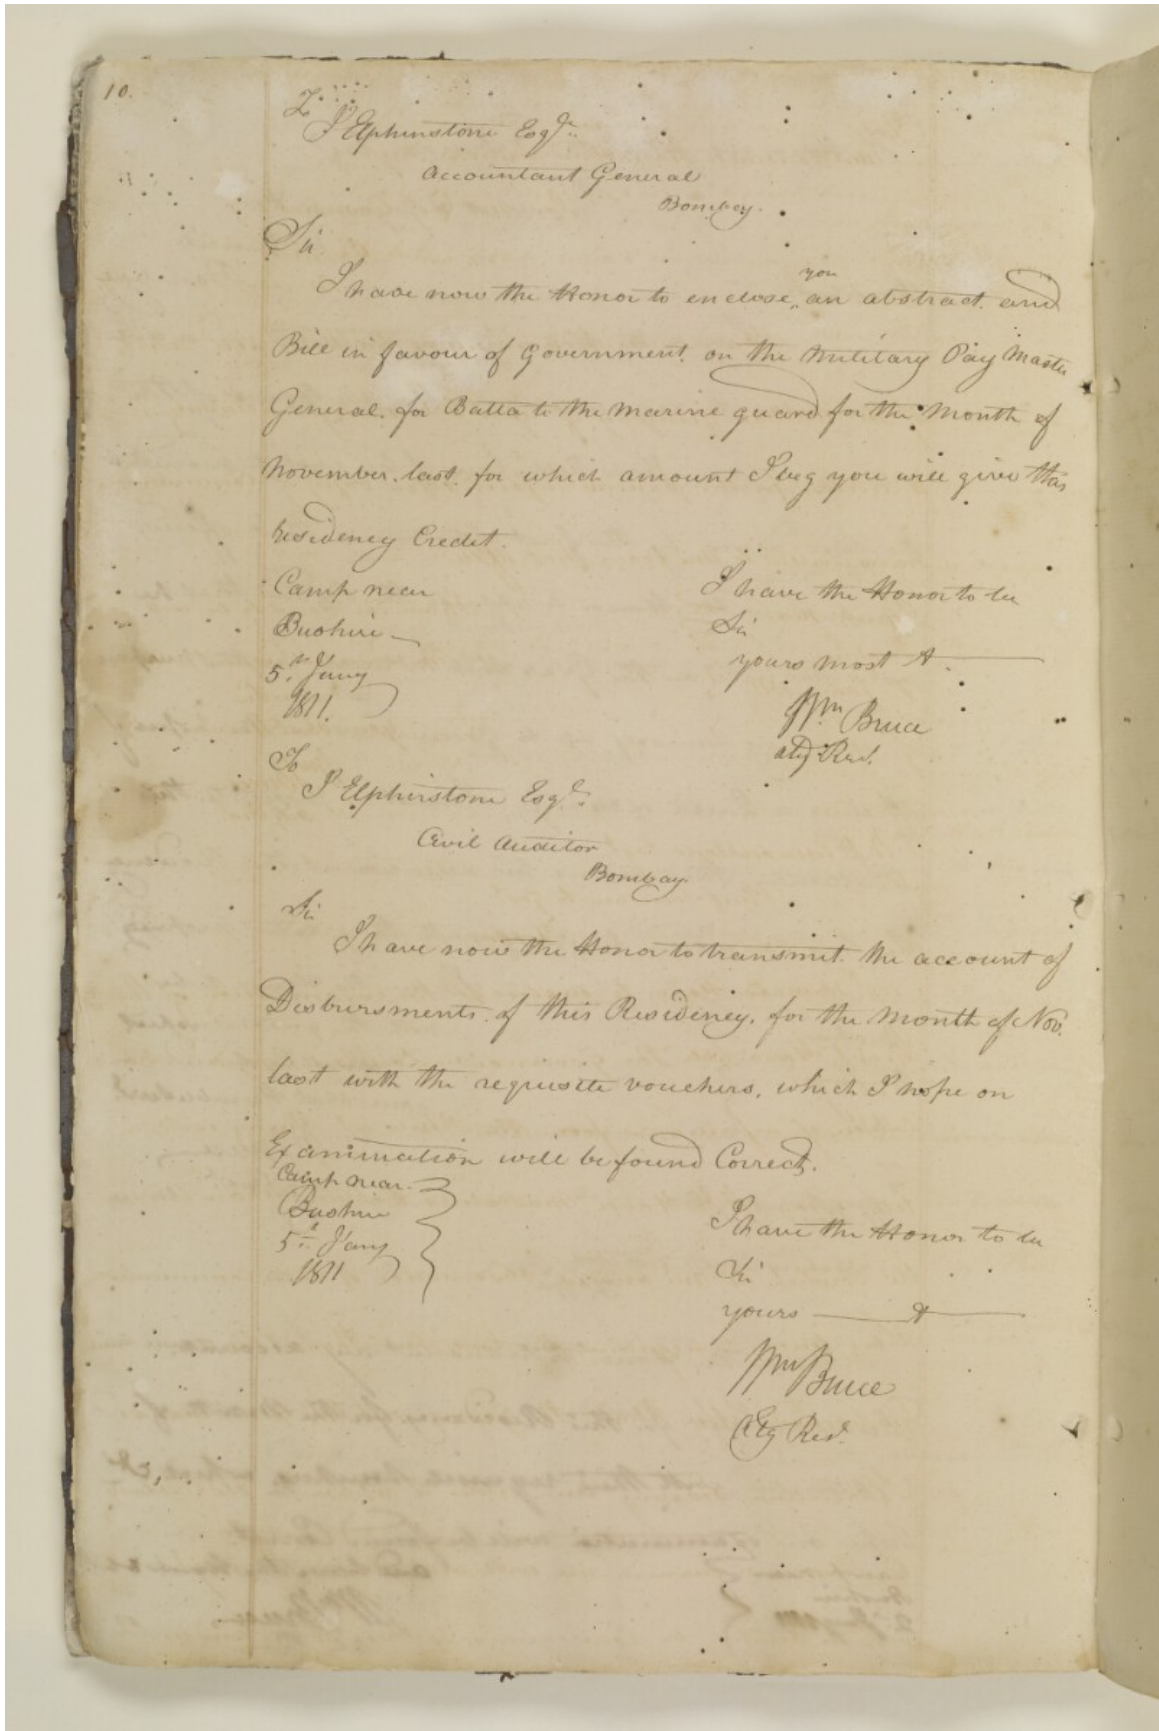 10.
To
J Elphinstone Esqre.
Accountant General
Bombay.
Sir
you
I have now the Honor to enclose, an abstract. and
Bill in favour of Government. on the Military Pay Master
General. for Batta to the Marine guard for the Month of
November. last. for which amount I beg you will give this
Residency Credit.
Camp near
Bushire
5th. Jany
1811.
I have the Honor to be
Sir
yours most &
Wm Bruce
actg Resd.
To
J Elphinstone Esqre.
Civil Auditor
Bombay
Sir
I have now the Honor to transmit. the account of
Disbursments. of this Residency. for the Month of Nov.
last with the requisite vouchers, which I hope on
Examination will be found Correct.
Camp near
Bushire
5th Jany
1811
I have the Honor to be
Sir
yours &
Wm Bruce
Actg Resd.